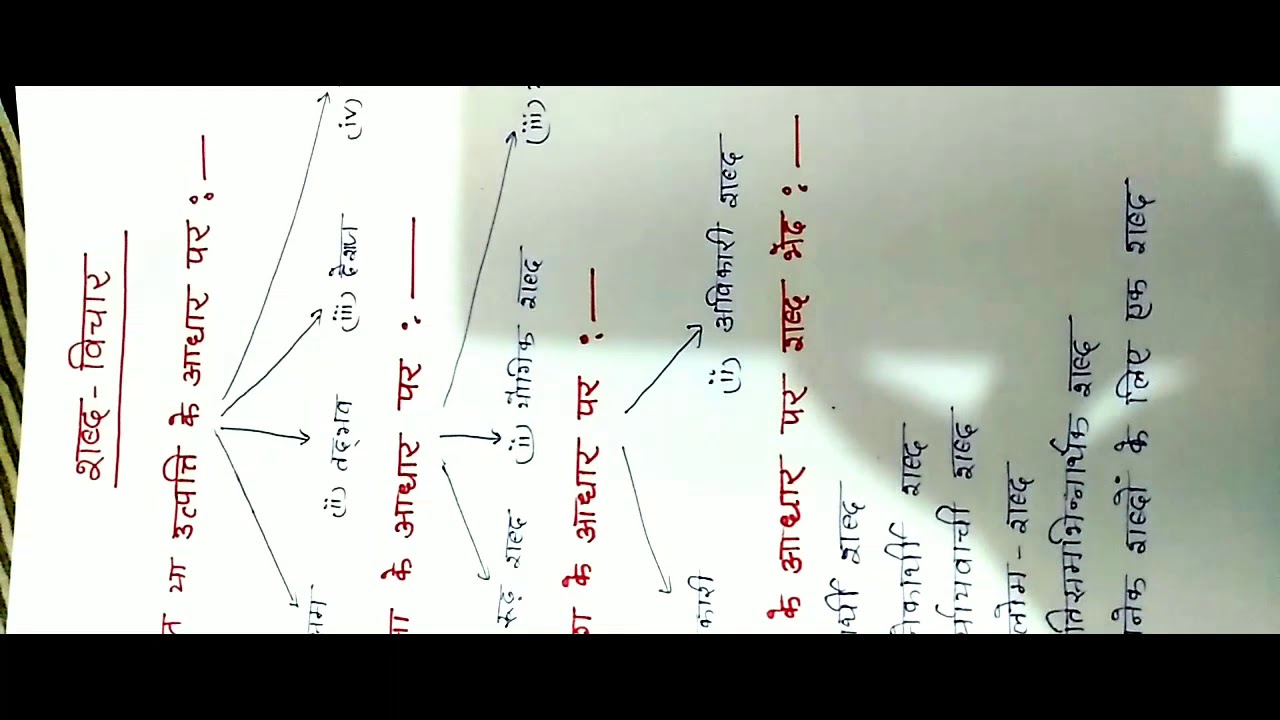 शब्द-विचार
त या उत्पत्ति के आधार पर :—
(ii) तद्भव (iii) देशज (iv)
ना के आधार पर :—
रूढ़ शब्द (ii) यौगिक शब्द (iii)
के आधार पर :—
कारी (ii) अविकारी शब्द
के आधार पर शब्द भेद :—
र्थी शब्द
नेकार्थी शब्द
र्यायवाची शब्द
लोम-शब्द
तिसमभिन्नार्थक शब्द
नेक शब्दों के लिए एक शब्द